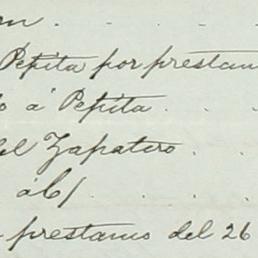 Pepita por prestam
á Pepita
del Zapatero
prestamo del 26